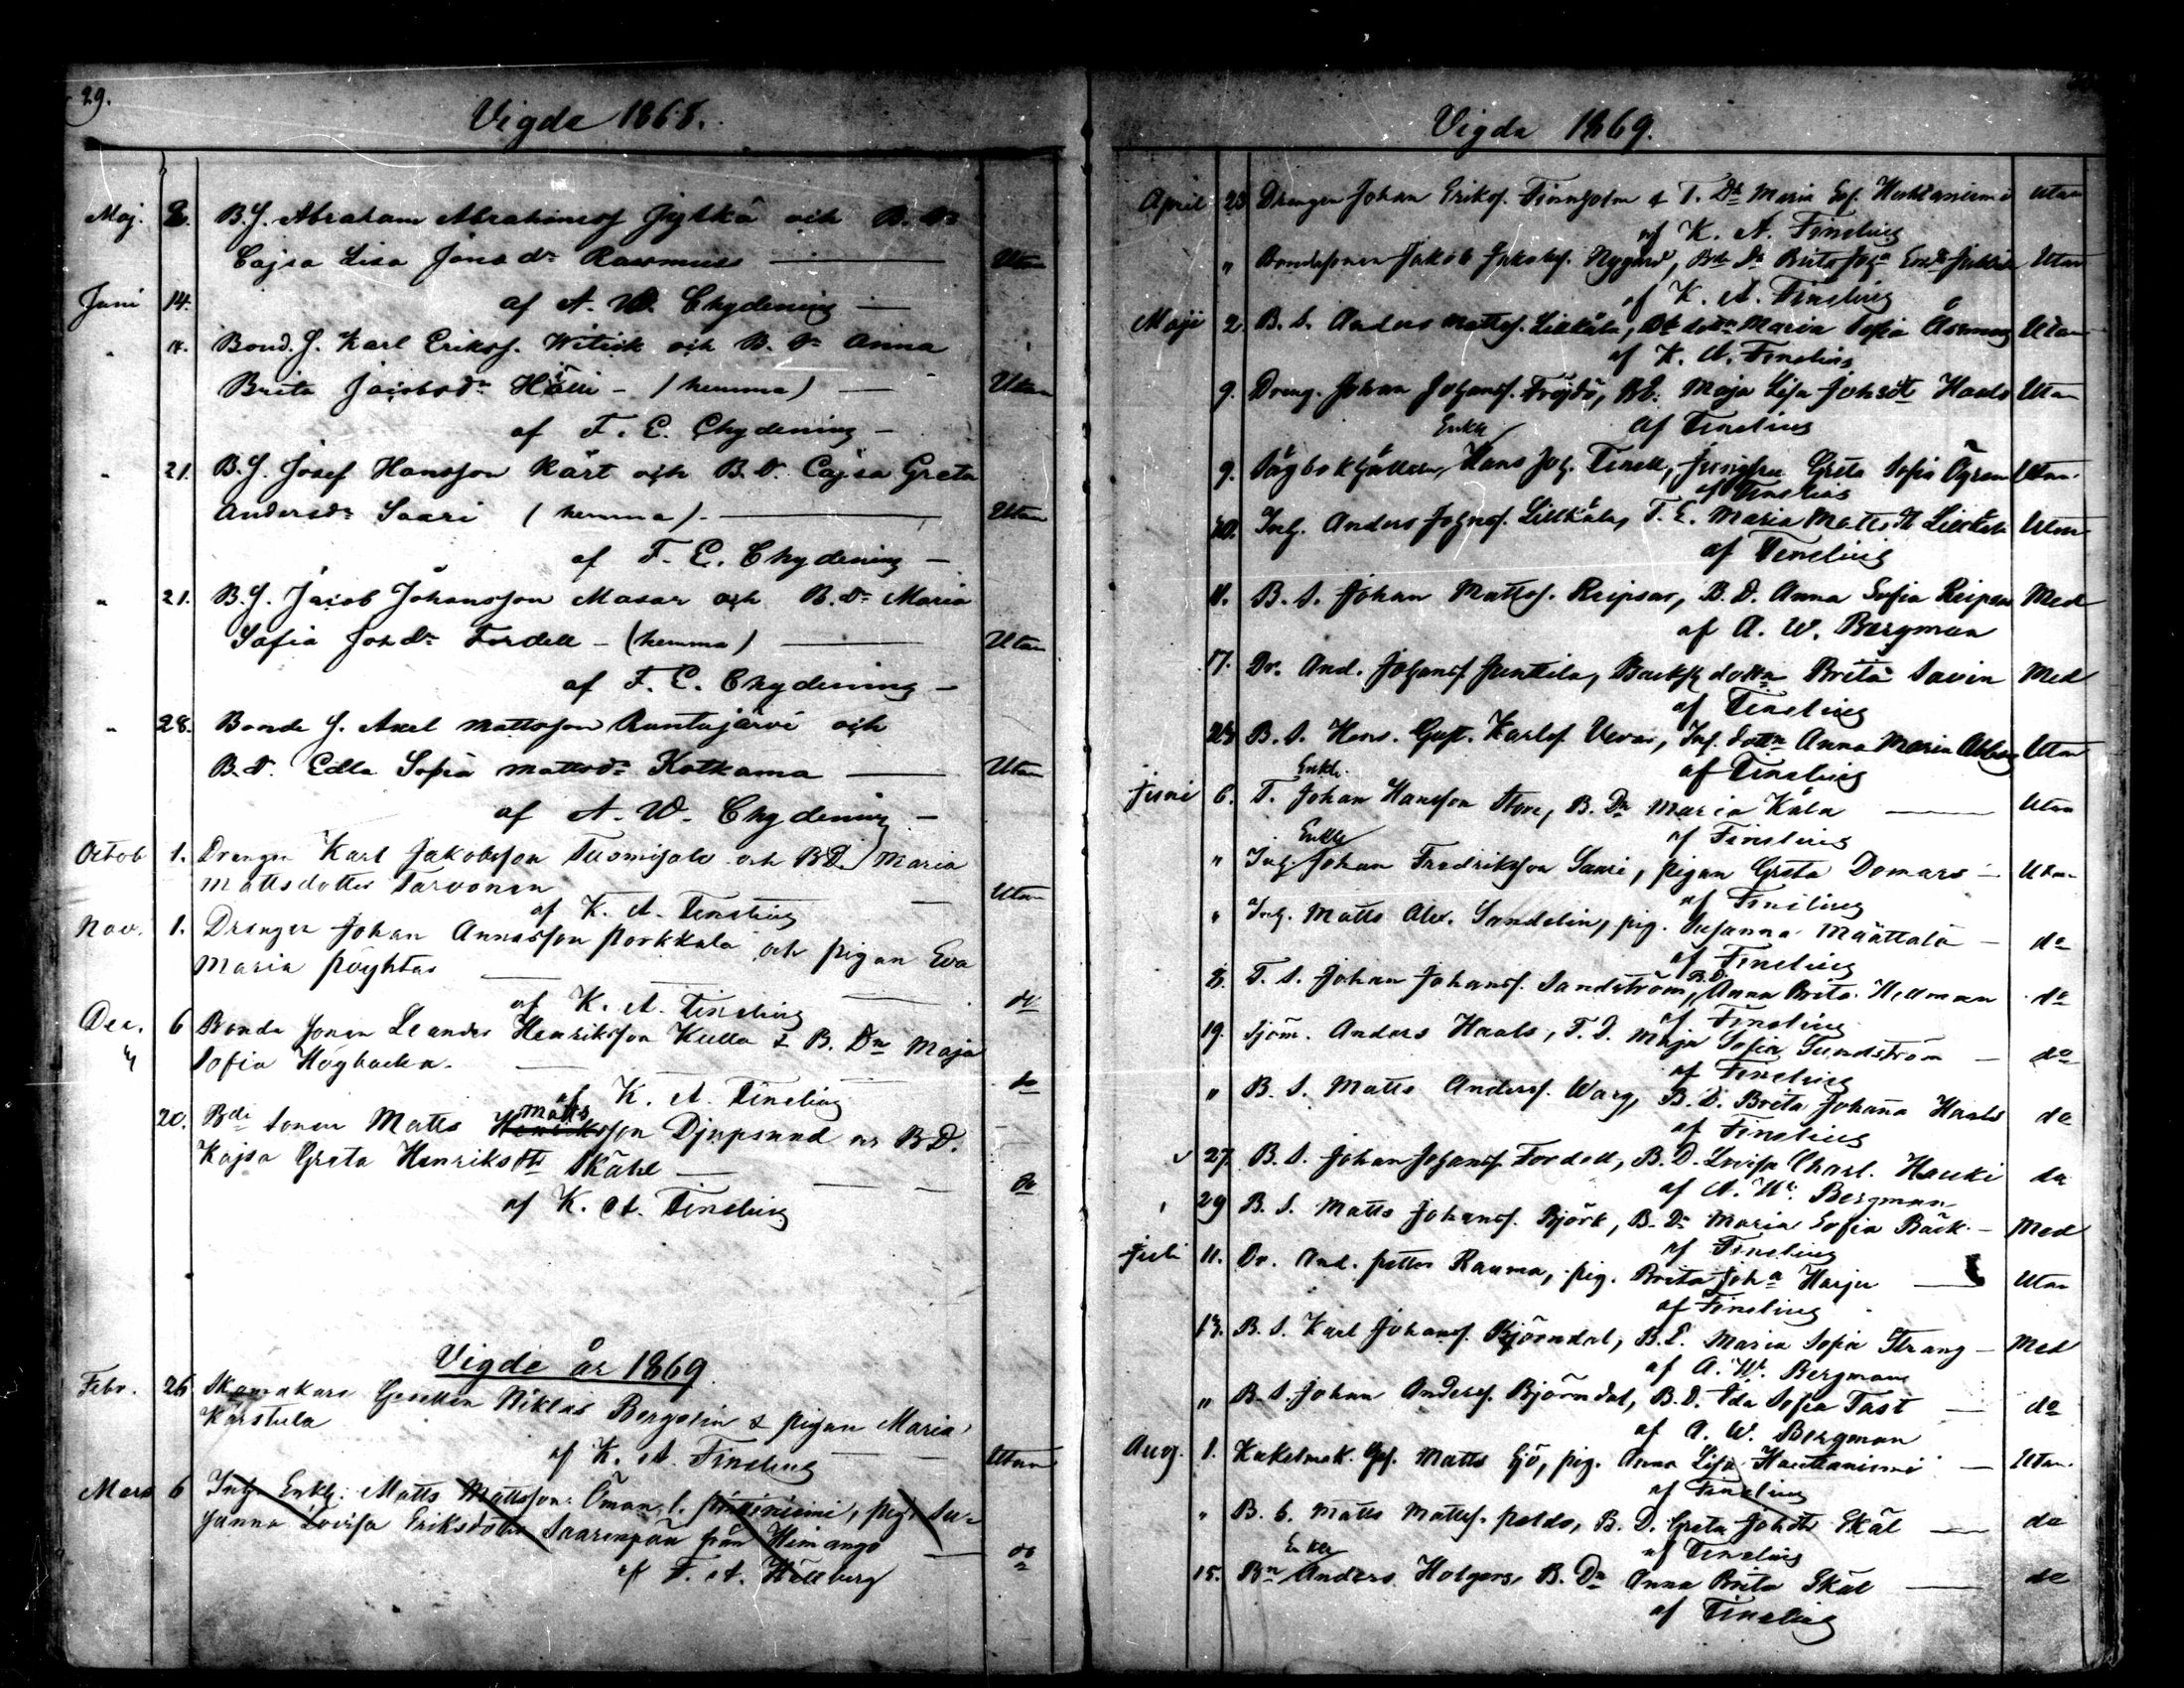 29.
Vigde 1868.
Maj. 2. B.S. Abraham Abrahamss Jylkä och B. Dr
Cajsa Lisa Jonsdr Rasmus — Utan
Juni 14. af A. W. Chydenius —
" 14. Bond. S. Karl Erikss. Witick och B. Dr Anna
Brita Jacobsdr Hälli – (hemma) — Utan
af F. E. Chydenius –
" 21. B.S. Josef Hansson Kärt och B.D. Cajsa Greta
Andersdr Saari (hemma). — Utan
af F. E. Chydenius –
" 21. B.S. Jacob Johansson Masar och B. Dr Maria
Sofia Joh Dr Fordell – (hemma) — Utan
af F. E. Chydenius –
" 28. Bonde S. Axel Mattsson Rantajärvi och
B.D. Edla Sofia Mattsdr Kotkama — Utan
af A. W. Chydenius –
Octob 1. Drengen Karl Jakobsson Tuomisalo och B.D. Maria
Mattsdotter Tarvonen — Utan
af K. A. Finelius
Nov. 1. Drengen Johan Annasson Porkkala och pigan Eva
Maria Pöyhtäs — do
af K. A. Finelius
Dec. 6 Bonde Sonen Leander Henriksson Kulla & B. Dn Maja
Sofia Högbacka. — do
af K. A. Finelius
20. Bde Sonen Matts Matts
Henriksson Djupsund o B.D.
Kajsa Greta Henriksdtr Skähl — do
af K. A. Finelius
Vigde år 1869
Febr. 26 Skomakare Gesellen Niklas Bergelin & pigan Maria
Karstula — Utan
af K. A. Finelius
Mars 6 Inh. Enkl. Matts Mattsson Öman l. Pittiniemi, pig. Su-
sanna Lovisa Eriksdotter Saarenpää från Himango — do
af F. A. Hällberg
Vigda 1869.
April 23 Drengen Johan Erikss. Finnholm & T. Dr Maria Hautaniemi Utan
af K. A. Finelius
" Bondesonen Jakob Jakobs. Nygård, B. Dr Brita Utan
af K. A. Finelius
Maji 2 B. S. Anders Mattss. Lillkåla, B dotr Maria Sofia Åsmus Utan
af K. A. Finelius
9. Dreng. Johan Johanss. Fröjdö, B.D. Maja Lisa Johsdtr Haals Utan
af Finelius
Enkl
9. Johan Hans Joh. Tinell, Jungfru Greta Sofia Ögren Utan.
af Finelius
30. Inh. Anders Johnss. Lillkåla, T. E. Maria Matts dtr Lillkåla Utan
af Finelius
11. B. S. Johan Mattss. Reipsar, B. D. Anna Sofia Reipsar Med
af A. W. Bergman
17. Dr. And. Johanss Junttila, Backst dottr Brita Savin Med
af Finelius
23 B. S. Hens. Gust. Karlss. Uevar, Inh. dottr Anna Maria Utan
af Finelius
Enkl.
Juni 6. T. Johan Hansson Store, B. Dr Maria Kåla — Utan
af Finelius
Enkl
" Inh. Johan Fredriksson Saari, pigan Greta Domars — Utan
af Finelius
" Inh. Matts Alex. Sandelin, pig. Susanna Määttälä — do
af Finelius
8. T. S. Johan Johanss. Sandström, B.D. Anna Brita Hedman do
af Finelius
19. Sjöm. Anders Haals, T. D. Maja Sofia Sundström — do
af Finelius
" B. S. Matts Anderss. Warg, B. D. Brita Johana Haals do
af Finelius
27. B. S. Johan Johanss. Fordell, B. D. Lovisa Charl. Hauki do
af A. W. Bergman
29 B. S. Matts Johanss. Björk, B. Dr Maria Sofia Bäck – Med
af Finelius
Juli 11. Dr. And. Petter Rauma, pig. Brita Joha Harju — Utan
af Finelius
18. B. S. Karl Johanss. Björndal, B. D. Maria Sofia Strang – Med
af A. W. Bergman
" B. S. Johan Anderss. Björndal, B. D. Ida Sofia Tast — do
af A. W. Bergman
Aug. 1. Kakelmak. Ges. Matts Sjö, pig. Anna Lisa Hautaniemi — Utan.
af Finelius
" B. S. Matts Mattss. Peldo, B. D. Greta Johdtr Skäl — do
af Finelius
Enkl
15. Bn Anders Holgers, B. Dr Anna Brita Skäl — do
af Finelius